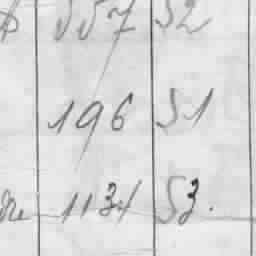 557 52
196 51
1134 53.